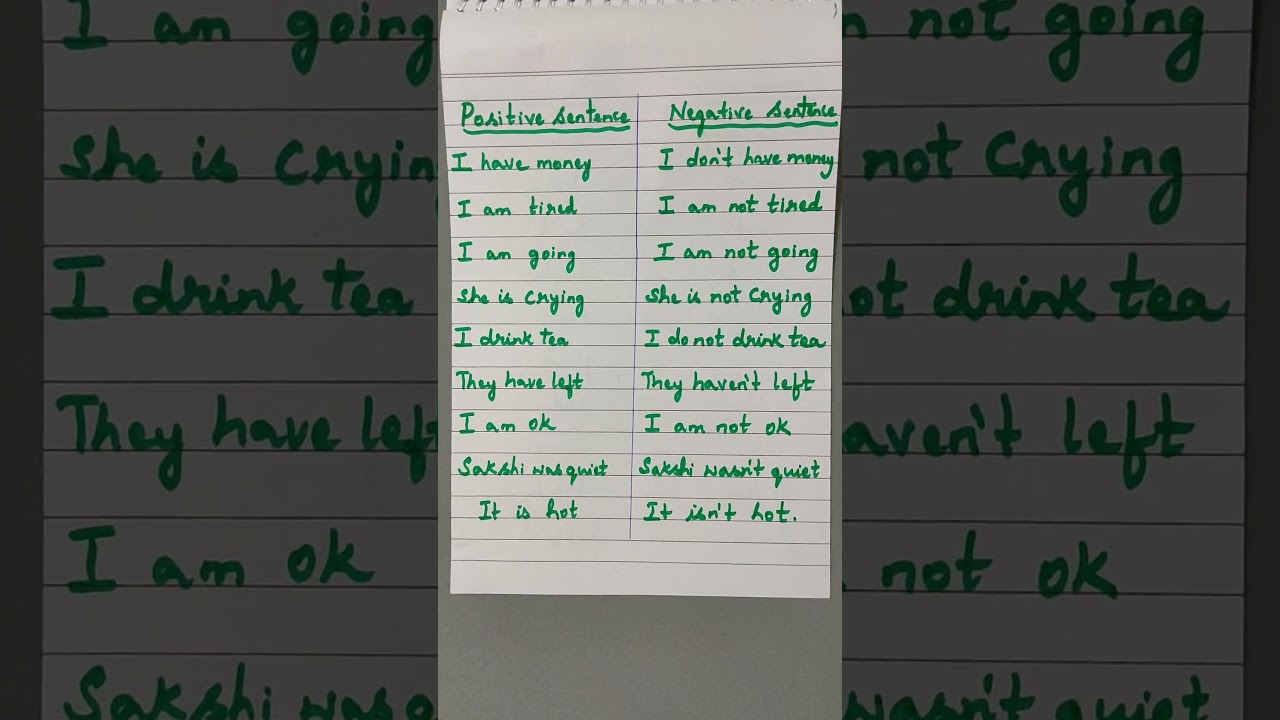 Positive sentence Negative sentence
I have money I don't have money
I am tired I am not tired
I am going I am not going
She is crying She is not crying
I drink tea I do not drink tea
They have left They haven't left
I am ok I am not ok
Sakshi was quiet Sakshi wasn't quiet
It is hot It isn't hot.